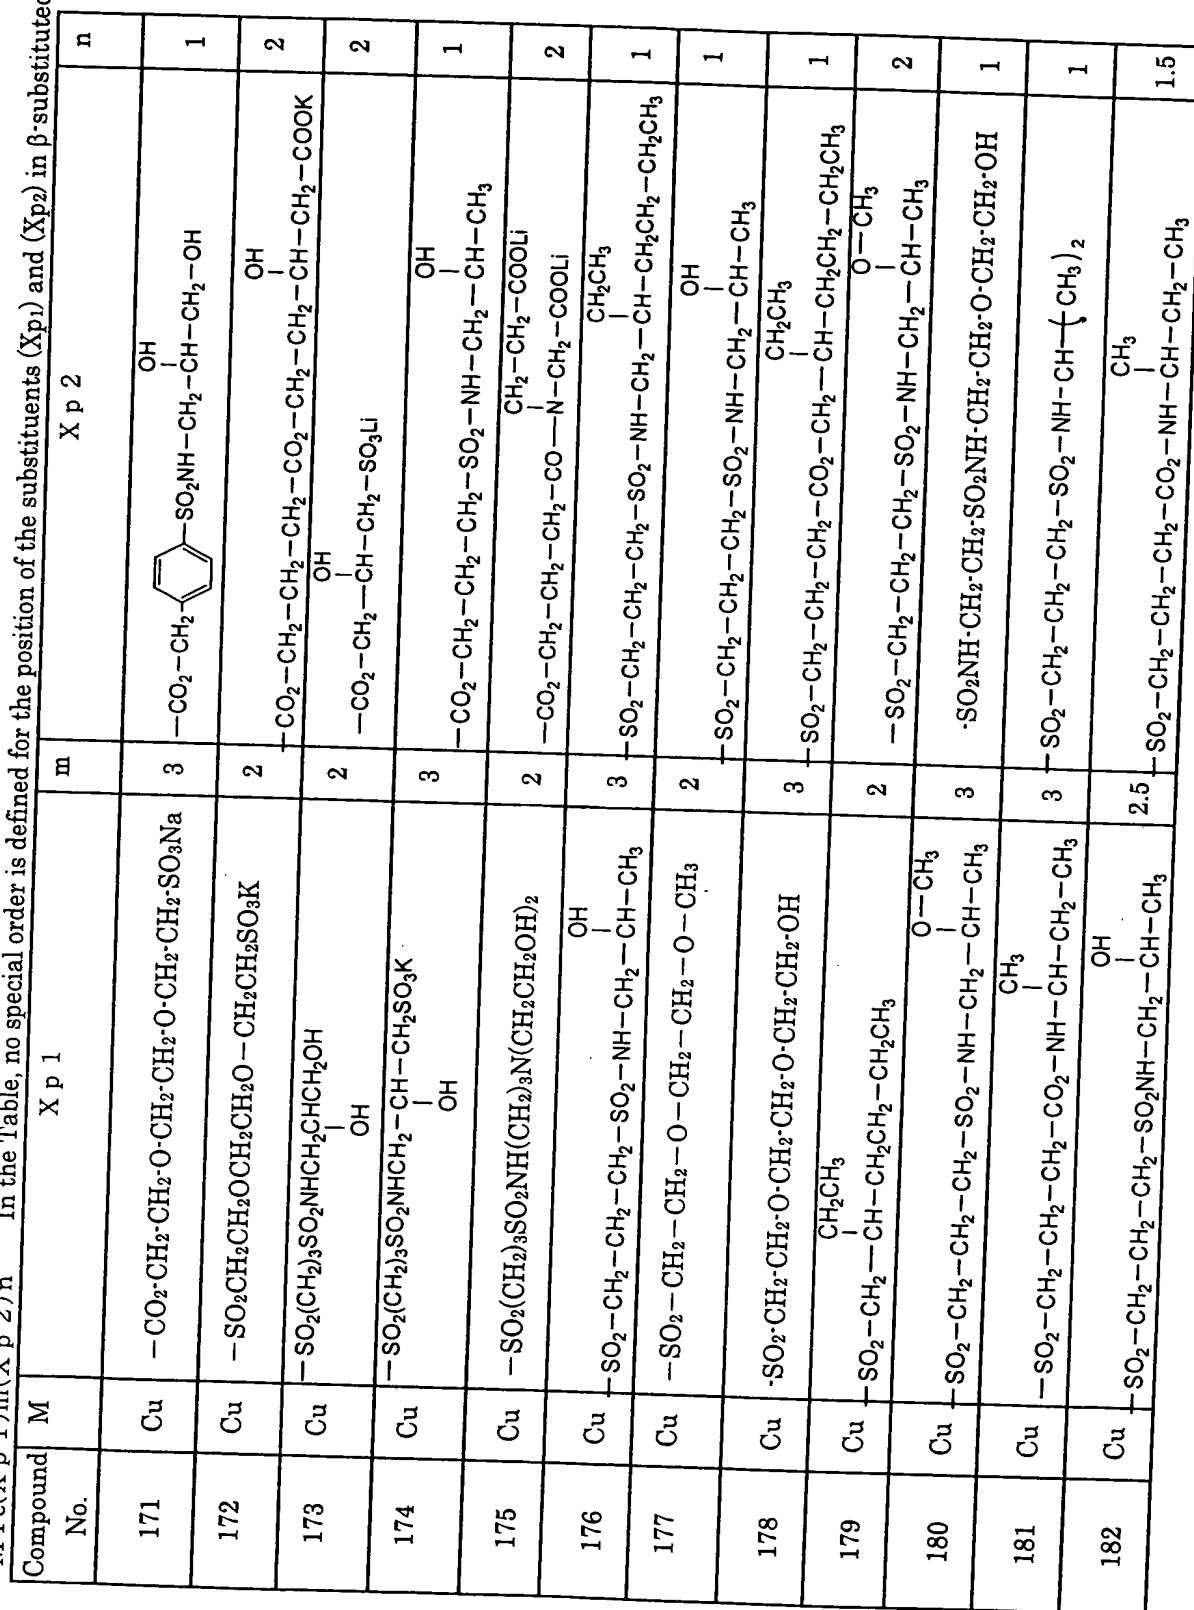 In the Table, no special order is defined for the position of the substituents (Xp1) and (Xp2) in β-substituted
Compound No. M Xp1 m Xp2 n
171 Cu —CO2-CH2-CH2-O-CH2-CH2-O-CH2-CH2-SO3Na 3 —CO2—CH2—C6H4—SO2NH—CH2—CH(OH)—CH2—OH 1
172 Cu —SO2CH2CH2OCH2CH2O—CH2CH2SO3K 2 —CO2—CH2—CH2—CH2—CO2—CH2—CH2—CH(OH)—CH2—COOK 2
173 Cu —SO2(CH2)3SO2NHCH2CH(OH)CH2OH 2 —CO2—CH2—CH(OH)—CH2—SO3Li 2
174 Cu —SO2(CH2)3SO2NHCH2—CH(OH)—CH2SO3K 3 —CO2—CH2—CH2—CH2—SO2—NH—CH2—CH(OH)—CH3 1
175 Cu —SO2(CH2)3SO2NH(CH2)3N(CH2CH2OH)2 2 —CO2—CH2—CH2—CH2—CO—N(CH2—CH2—COOLi)—CH2—COOLi 2
176 Cu —SO2—CH2—CH2—CH2—SO2—NH—CH2—CH(OH)—CH3 3 —SO2—CH2—CH2—CH2—SO2—NH—CH2—CH(CH2CH3)—CH2CH2—CH2CH3 1
177 Cu —SO2—CH2—CH2—O—CH2—CH2—O—CH3 2 —SO2—CH2—CH2—CH2—SO2—NH—CH2—CH(OH)—CH3 1
178 Cu -SO2-CH2-CH2-O-CH2-CH2-O-CH2-CH2-OH 3 —SO2—CH2—CH2—CH2—CO2—CH2—CH(CH2CH3)—CH2CH2—CH2CH3 1
179 Cu —SO2—CH2—CH(CH2CH3)—CH2CH2—CH2CH3 2 —SO2—CH2—CH2—CH2—SO2—NH—CH2—CH(O—CH3)—CH3 2
180 Cu —SO2—CH2—CH2—CH2—SO2—NH—CH2—CH(O—CH3)—CH3 3 -SO2NH-CH2-CH2-SO2NH-CH2-CH2-O-CH2-CH2-OH 1
181 Cu —SO2—CH2—CH2—CH2—CO2—NH—CH(CH3)—CH2—CH3 3 —SO2—CH2—CH2—CH2—SO2—NH—CH—(CH3)2 1
182 Cu —SO2—CH2—CH2—CH2—SO2NH—CH2—CH(OH)—CH3 2.5 —SO2—CH2—CH2—CH2—CO2—NH—CH(CH3)—CH2—CH3 1.5